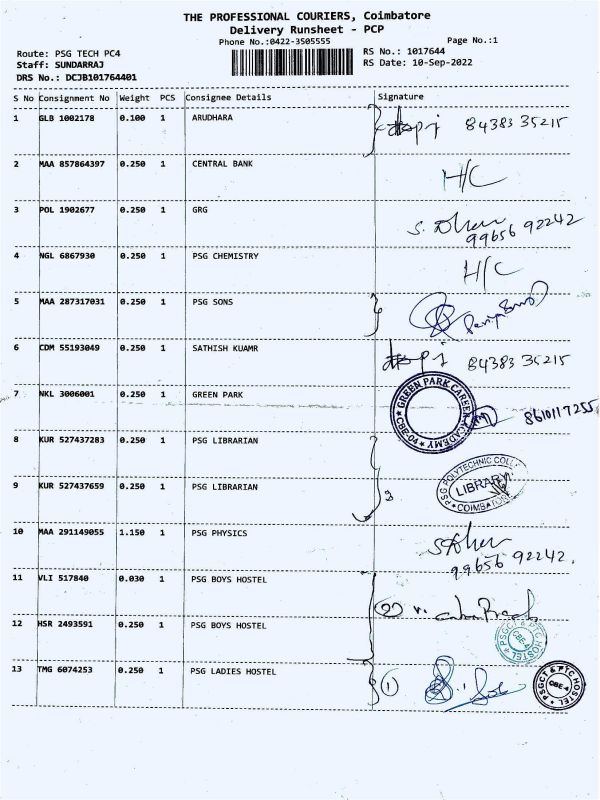 THE PROFESSIONAL COURIERS, Coimbatore
Delivery Runsheet - PCP
Phone No.:0422-3505555 Page No.:1
Route: PSG TECH PC4 RS No.: 1017644
Staff: SUNDARRAJ RS Date: 10-Sep-2022
DRS No.: DCJB101764401
S No Consignment No Weight PCS Consignee Details Signature
1 GLB 1002178 0.100 1 ARUDHARA 84383 35215
2 MAA 857864397 0.250 1 CENTRAL BANK H/C
3 POL 1902677 0.250 1 GRG
99656 92242
4 NGL 6867930 0.250 1 PSG CHEMISTRY H/C
5 MAA 287317031 0.250 1 PSG SONS
6 CDM 55193049 0.250 1 SATHISH KUAMR 84383 35215
7 NKL 3006001 0.250 1 GREEN PARK 8610117255
GREEN PARK CAREER ACADEMY CBE-04
8 KUR 527437283 0.250 1 PSG LIBRARIAN
9 KUR 527437659 0.250 1 PSG LIBRARIAN
PSG POLYTECHNIC COLL
LIBRARY
COIMBATO
10 MAA 291149055 1.150 1 PSG PHYSICS
99656 92242.
11 VLI 517840 0.030 1 PSG BOYS HOSTEL (2)
12 HSR 2493591 0.250 1 PSG BOYS HOSTEL
PSGCT & PTC HOSTEL CBE-4
13 TMG 6074253 0.250 1 PSG LADIES HOSTEL (1)
PSGCT & PTC HOSTEL CBE-4